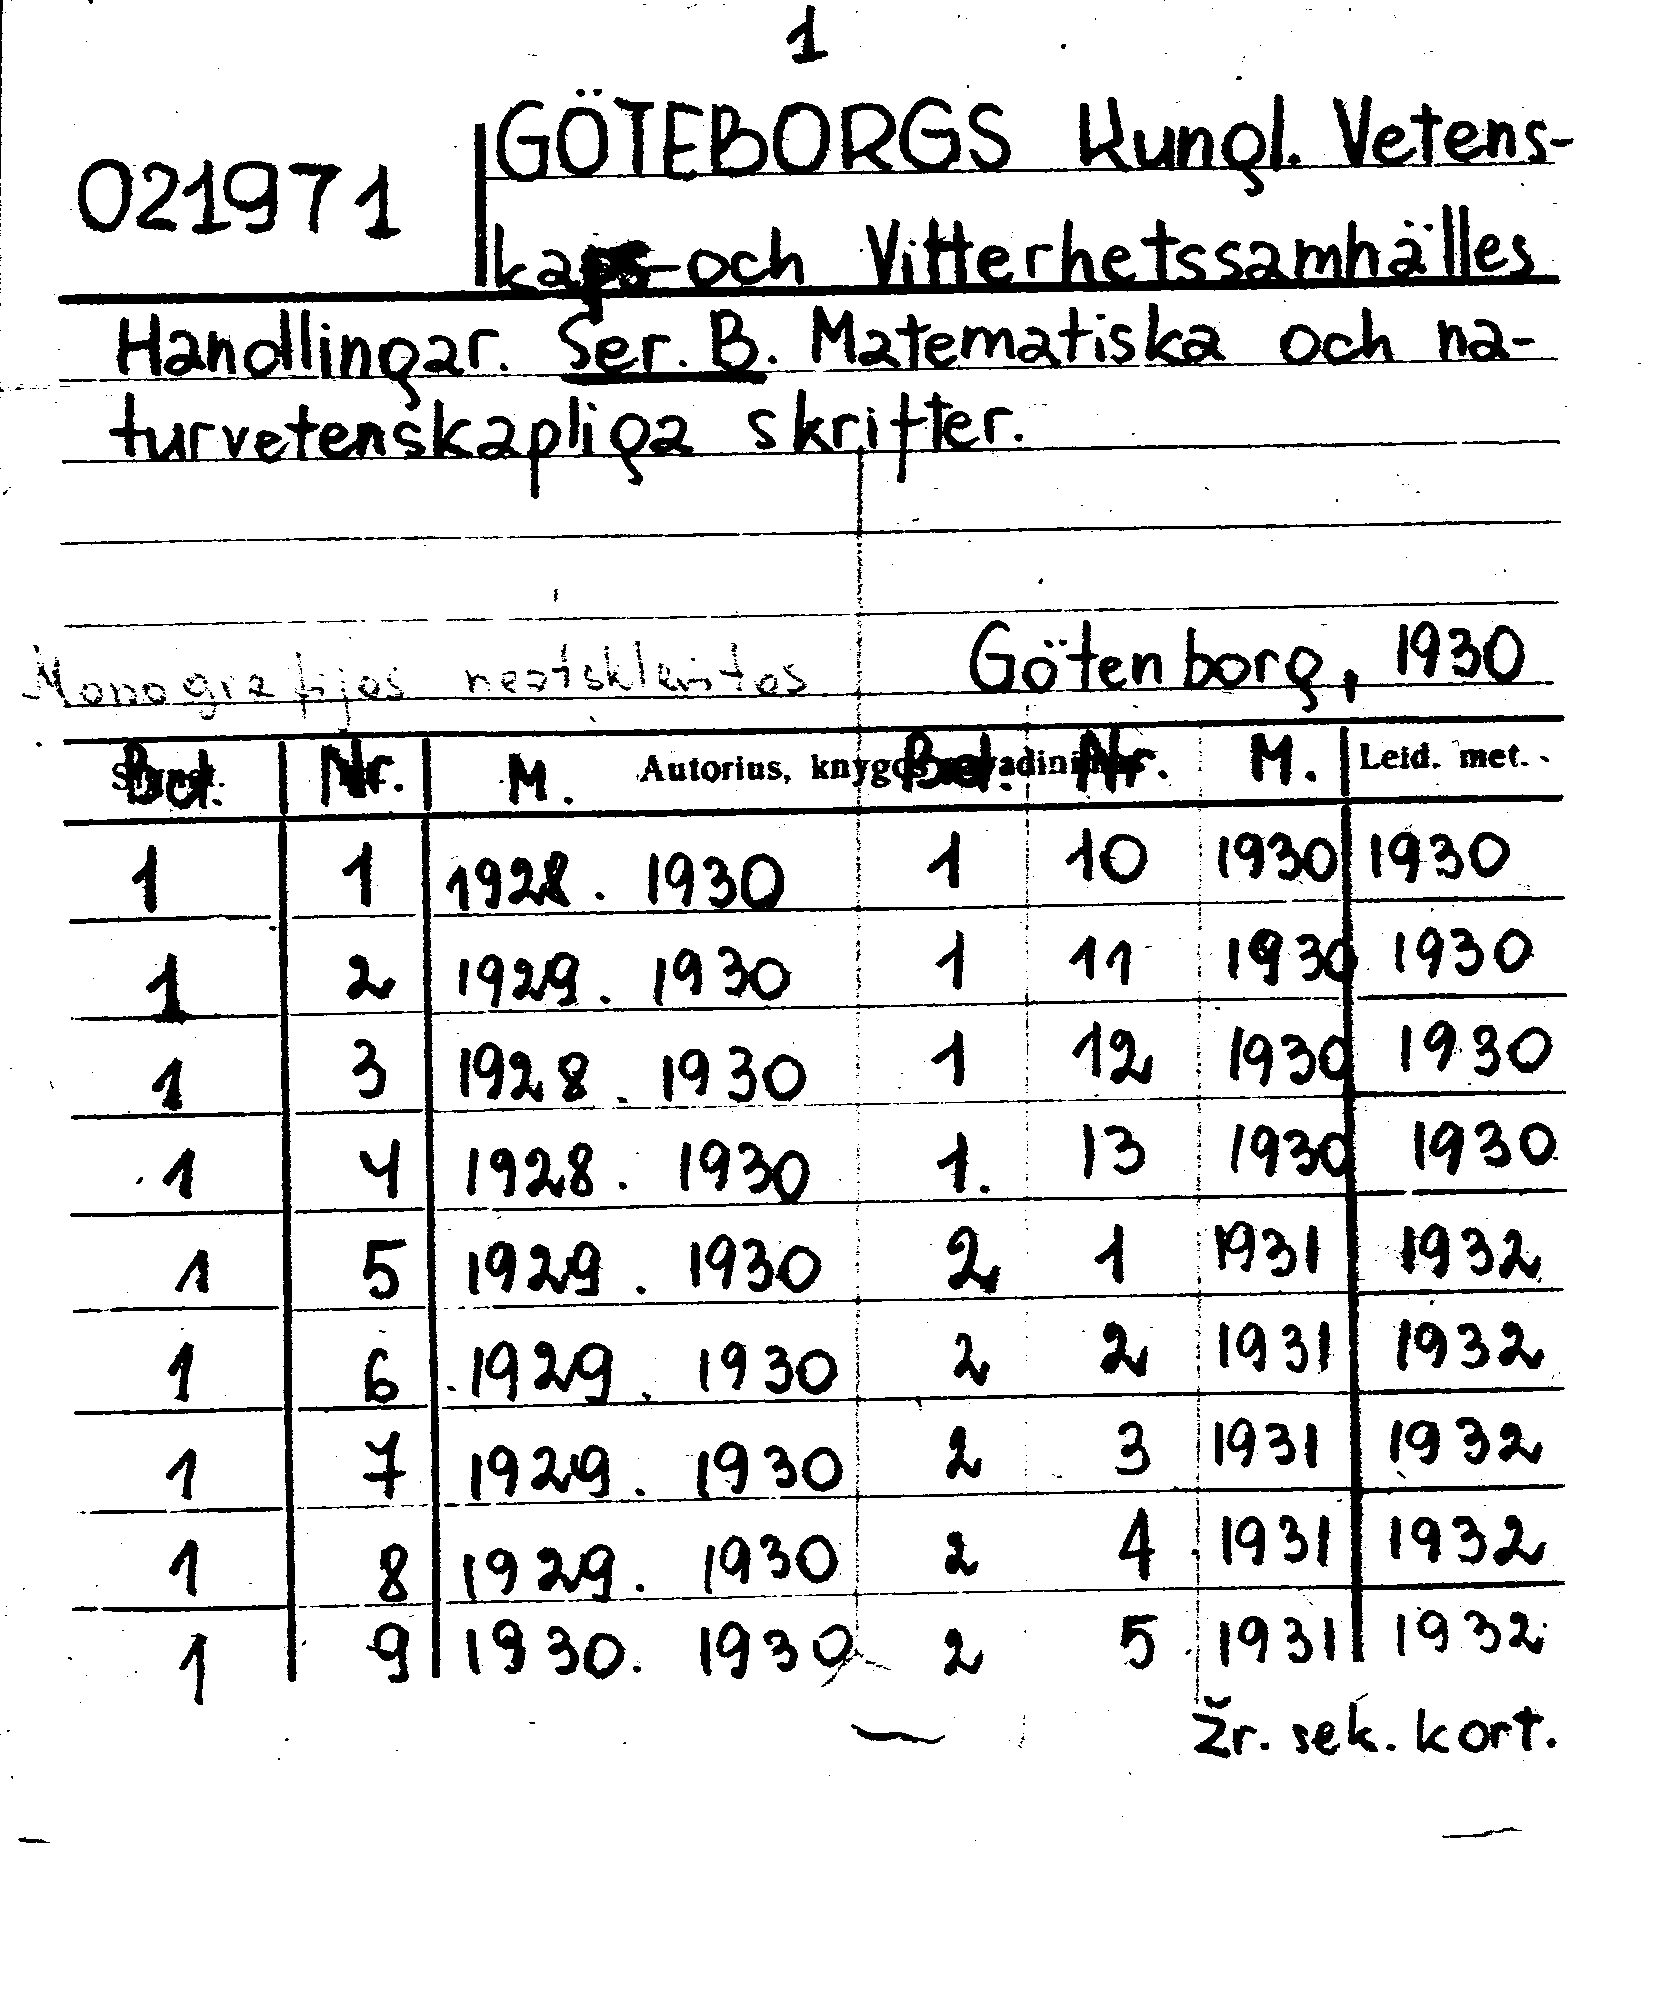 1
GÖTEBORGS Kungl. Vetens-
021971
kaps-och Vitterhetssamhälles
Handlingar. Ser. B. Matematiska och na-
turvetenskapliga skrifter.
Monografijos neatskleistos
Götenborg, 1930
Bd. Nr. M. Autorius, knygos Bd. Nr. M. Leid. met.
1 1 1928. 1930 1 10 1930 1930
1 2 1929. 1930 1 11 1930 1930
1 3 1928. 1930 1 12 1930 1930
1 4 1928. 1930 1. 13 1930 1930
1 5 1929. 1930 2 1 1931 1932
1 6 1929. 1930 2 2 1931 1932
1 7 1929. 1930 2 3 1931 1932
1 8 1929. 1930 2 4 1931 1932
1 9 1930. 1930 2 5 1931 1932
Žr. sek. kort.